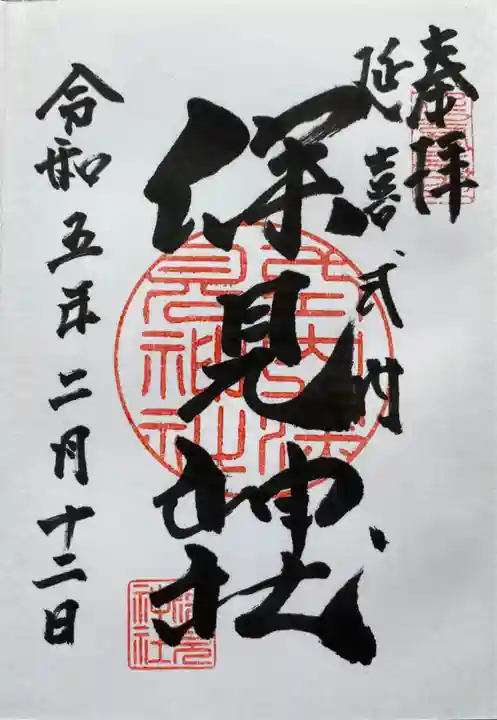 奉拝
延喜式内
保見神社
令和五年二月十二日